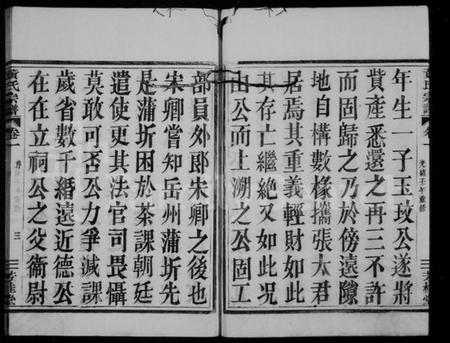 年生一子玉玟公遂將
貲產悉還之再三不許
而固歸之乃於傍遠隙
地自構數椽攜張太君
居焉其重義輕財如此
其存亡繼絶又如此况
由公而上溯之公固工
部員外郎朱卿之後也
朱卿嘗知岳州蒲圻先
是蒲圻困於茶課朝廷
遣使更其法官司畏懾
莫敢可否公力爭減課
歲省數千緡遠近德公
在在立祠公之父衞尉
黃氏宗譜
卷一
光緒壬午重修
黃氏宗譜
卷一
三